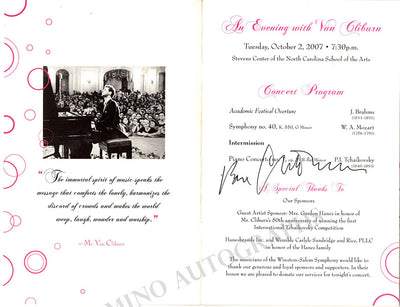 "The immortal spirit of music speaks the
message that comforts the lonely, harmonizes the
discord of crowds and makes the world
weep, laugh, wonder and worship."
~ Mr. Van Cliburn
An Evening with Van Cliburn
Tuesday, October 2, 2007 • 7:30p.m.
Stevens Center of the North Carolina School of the Arts
Concert Program
Academic Festival Overture J. Brahms
(1833-1897)
Symphony no. 40, K. 550, G Minor W. A. Mozart
(1756-1791)
Intermission
Piano Concerto P.I. Tchaikovsky
(1840-1893)
Van Cliburn
A Special Thanks To
Our Sponsors
Guest Artist Sponsor: Mrs. Gordon Hanes in honor of
Mr. Cliburn's 50th anniversary of winning the first
International Tchaikovsky Competition
Hanesbrands Inc. and Womble Carlyle Sandridge and Rice, PLLC
in honor of the Hanes family
The musicians of the Winston-Salem Symphony would like to
thank our generous and loyal sponsors and supporters. In their
honor we are pleased to donate our services for tonight's concert.
MINO AUTOGRAPHS